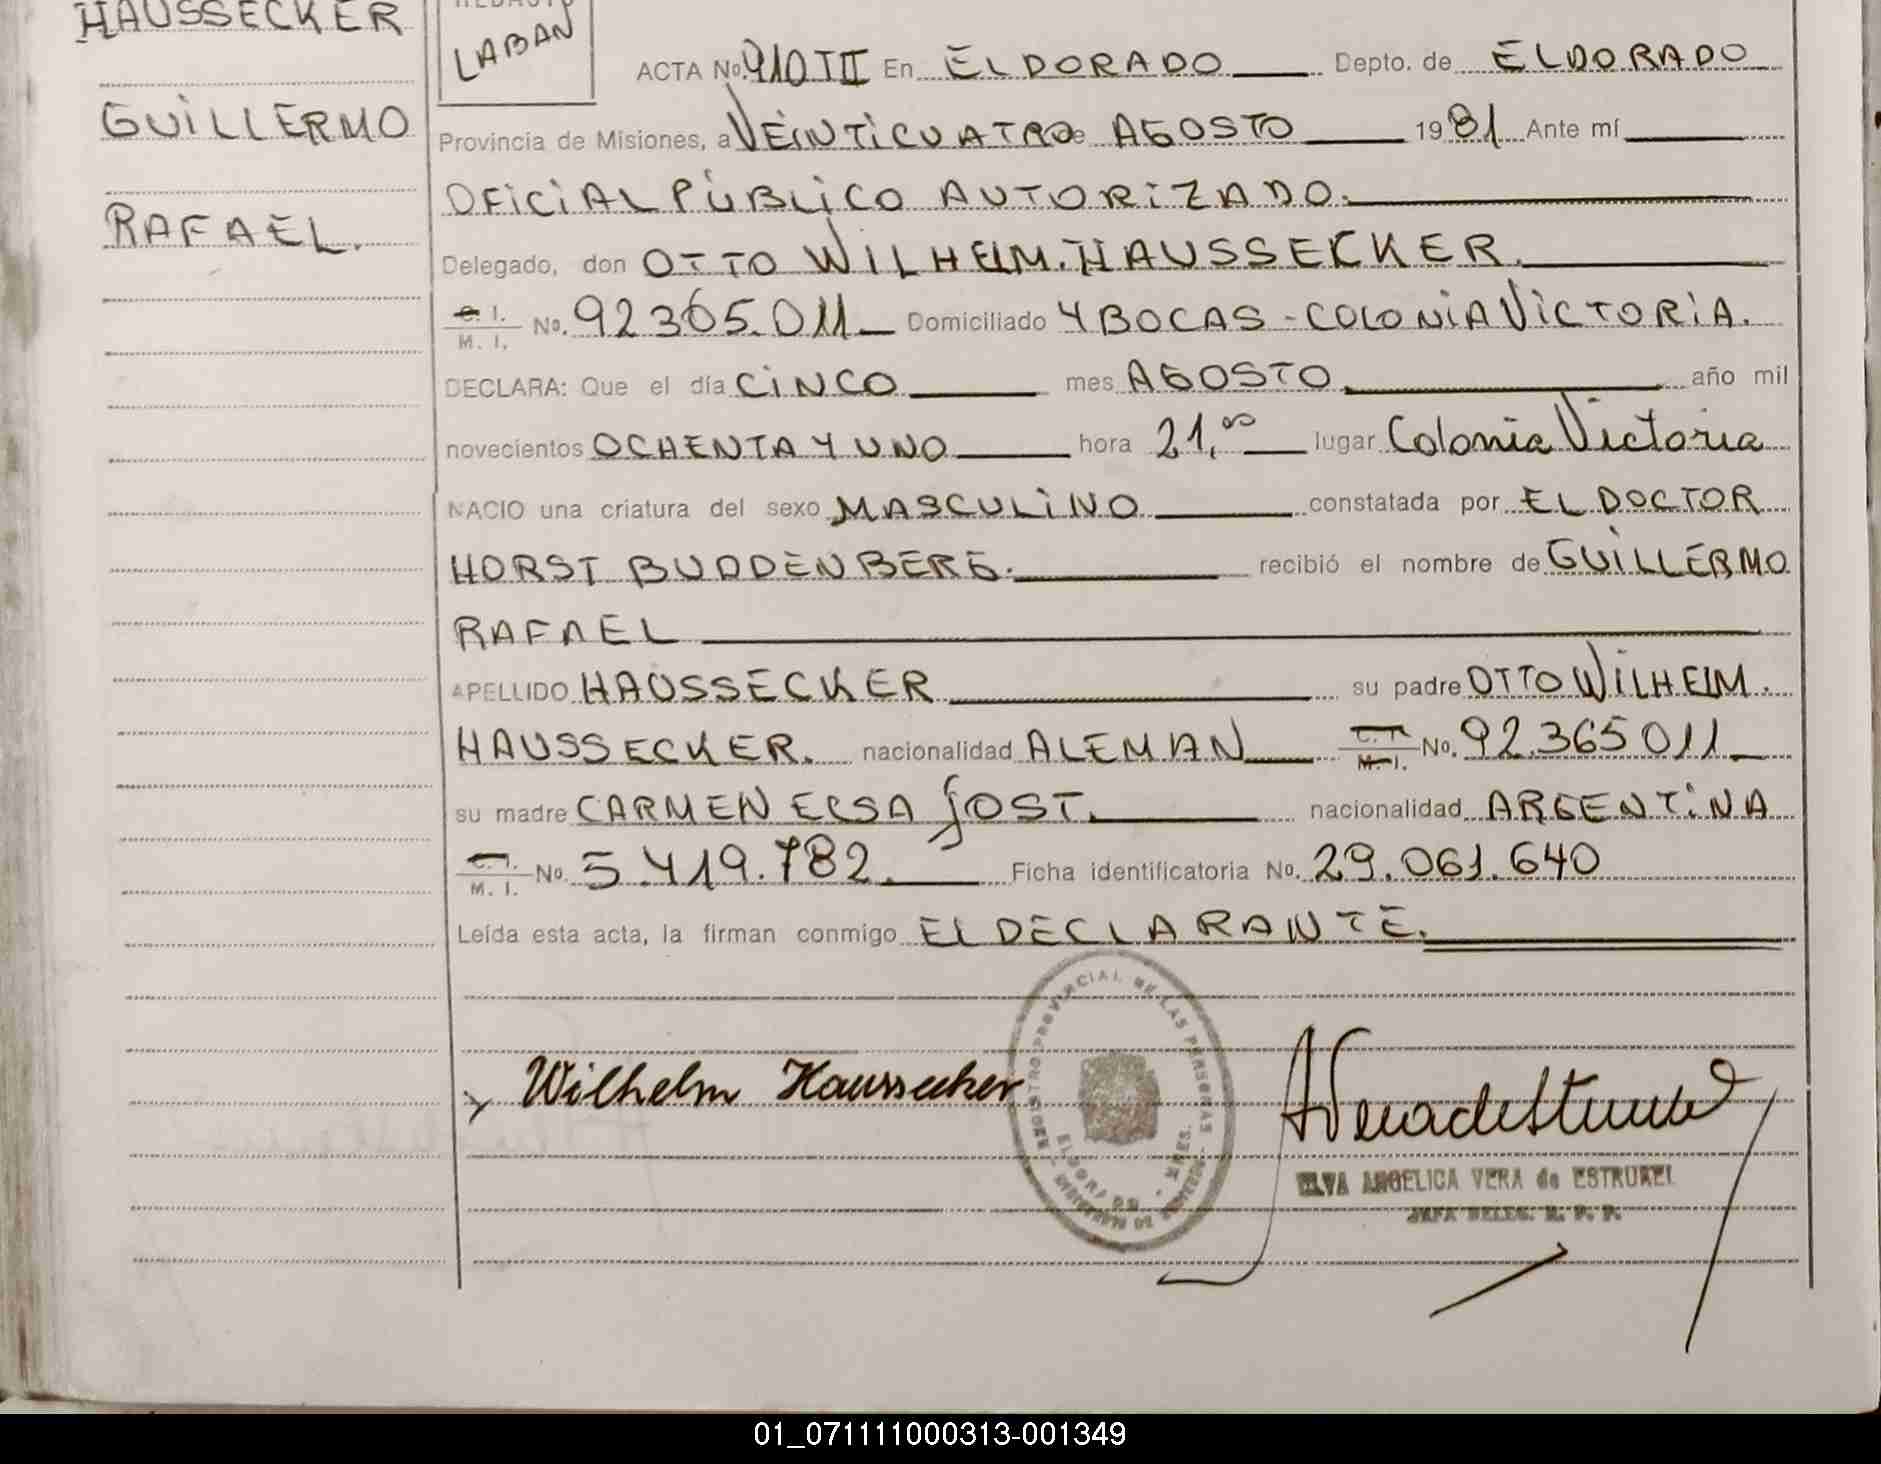 HAUSSECKER
GUILLERMO
RAFAEL.
LABAN
ACTA No. 910 TII En ELDORADO Depto. de ELDORADO
Provincia de Misiones, a VEINTICUATRO de AGOSTO 1981 Ante mí
OFICIAL PÚBLICO AUTORIZADO.
Delegado, don OTTO WILHELM. HAUSSECKER.
C. I. / M. I. No. 92365.011 Domiciliado 4 BOCAS - COLONIA VICTORIA.
DECLARA: Que el día CINCO mes AGOSTO año mil
novecientos OCHENTA Y UNO hora 21,00 lugar Colonia Victoria
NACIO una criatura del sexo MASCULINO constatada por EL DOCTOR
HORST BUDDENBERG. recibió el nombre de GUILLERMO
RAFAEL
APELLIDO HAUSSECKER su padre OTTO WILHELM.
HAUSSECKER. nacionalidad ALEMAN C. I. / M. I. No. 92.365011
su madre CARMEN ELSA JOST. nacionalidad ARGENTINA
C. I. / M. I. No. 5.419.782. Ficha identificatoria No. 29.061.640
Leída esta acta, la firman conmigo EL DECLARANTE.
REGISTRO PROVINCIAL DE LAS PERSONAS
ELDORADO - MNES.
Wilhelm Haussecker
ELVA ANGELICA VERA de ESTRUREL
JEFA DELEG. R. P. P.
01_071111000313-001349